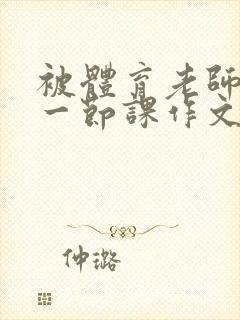 被體育老師
一節課作文
仲璐